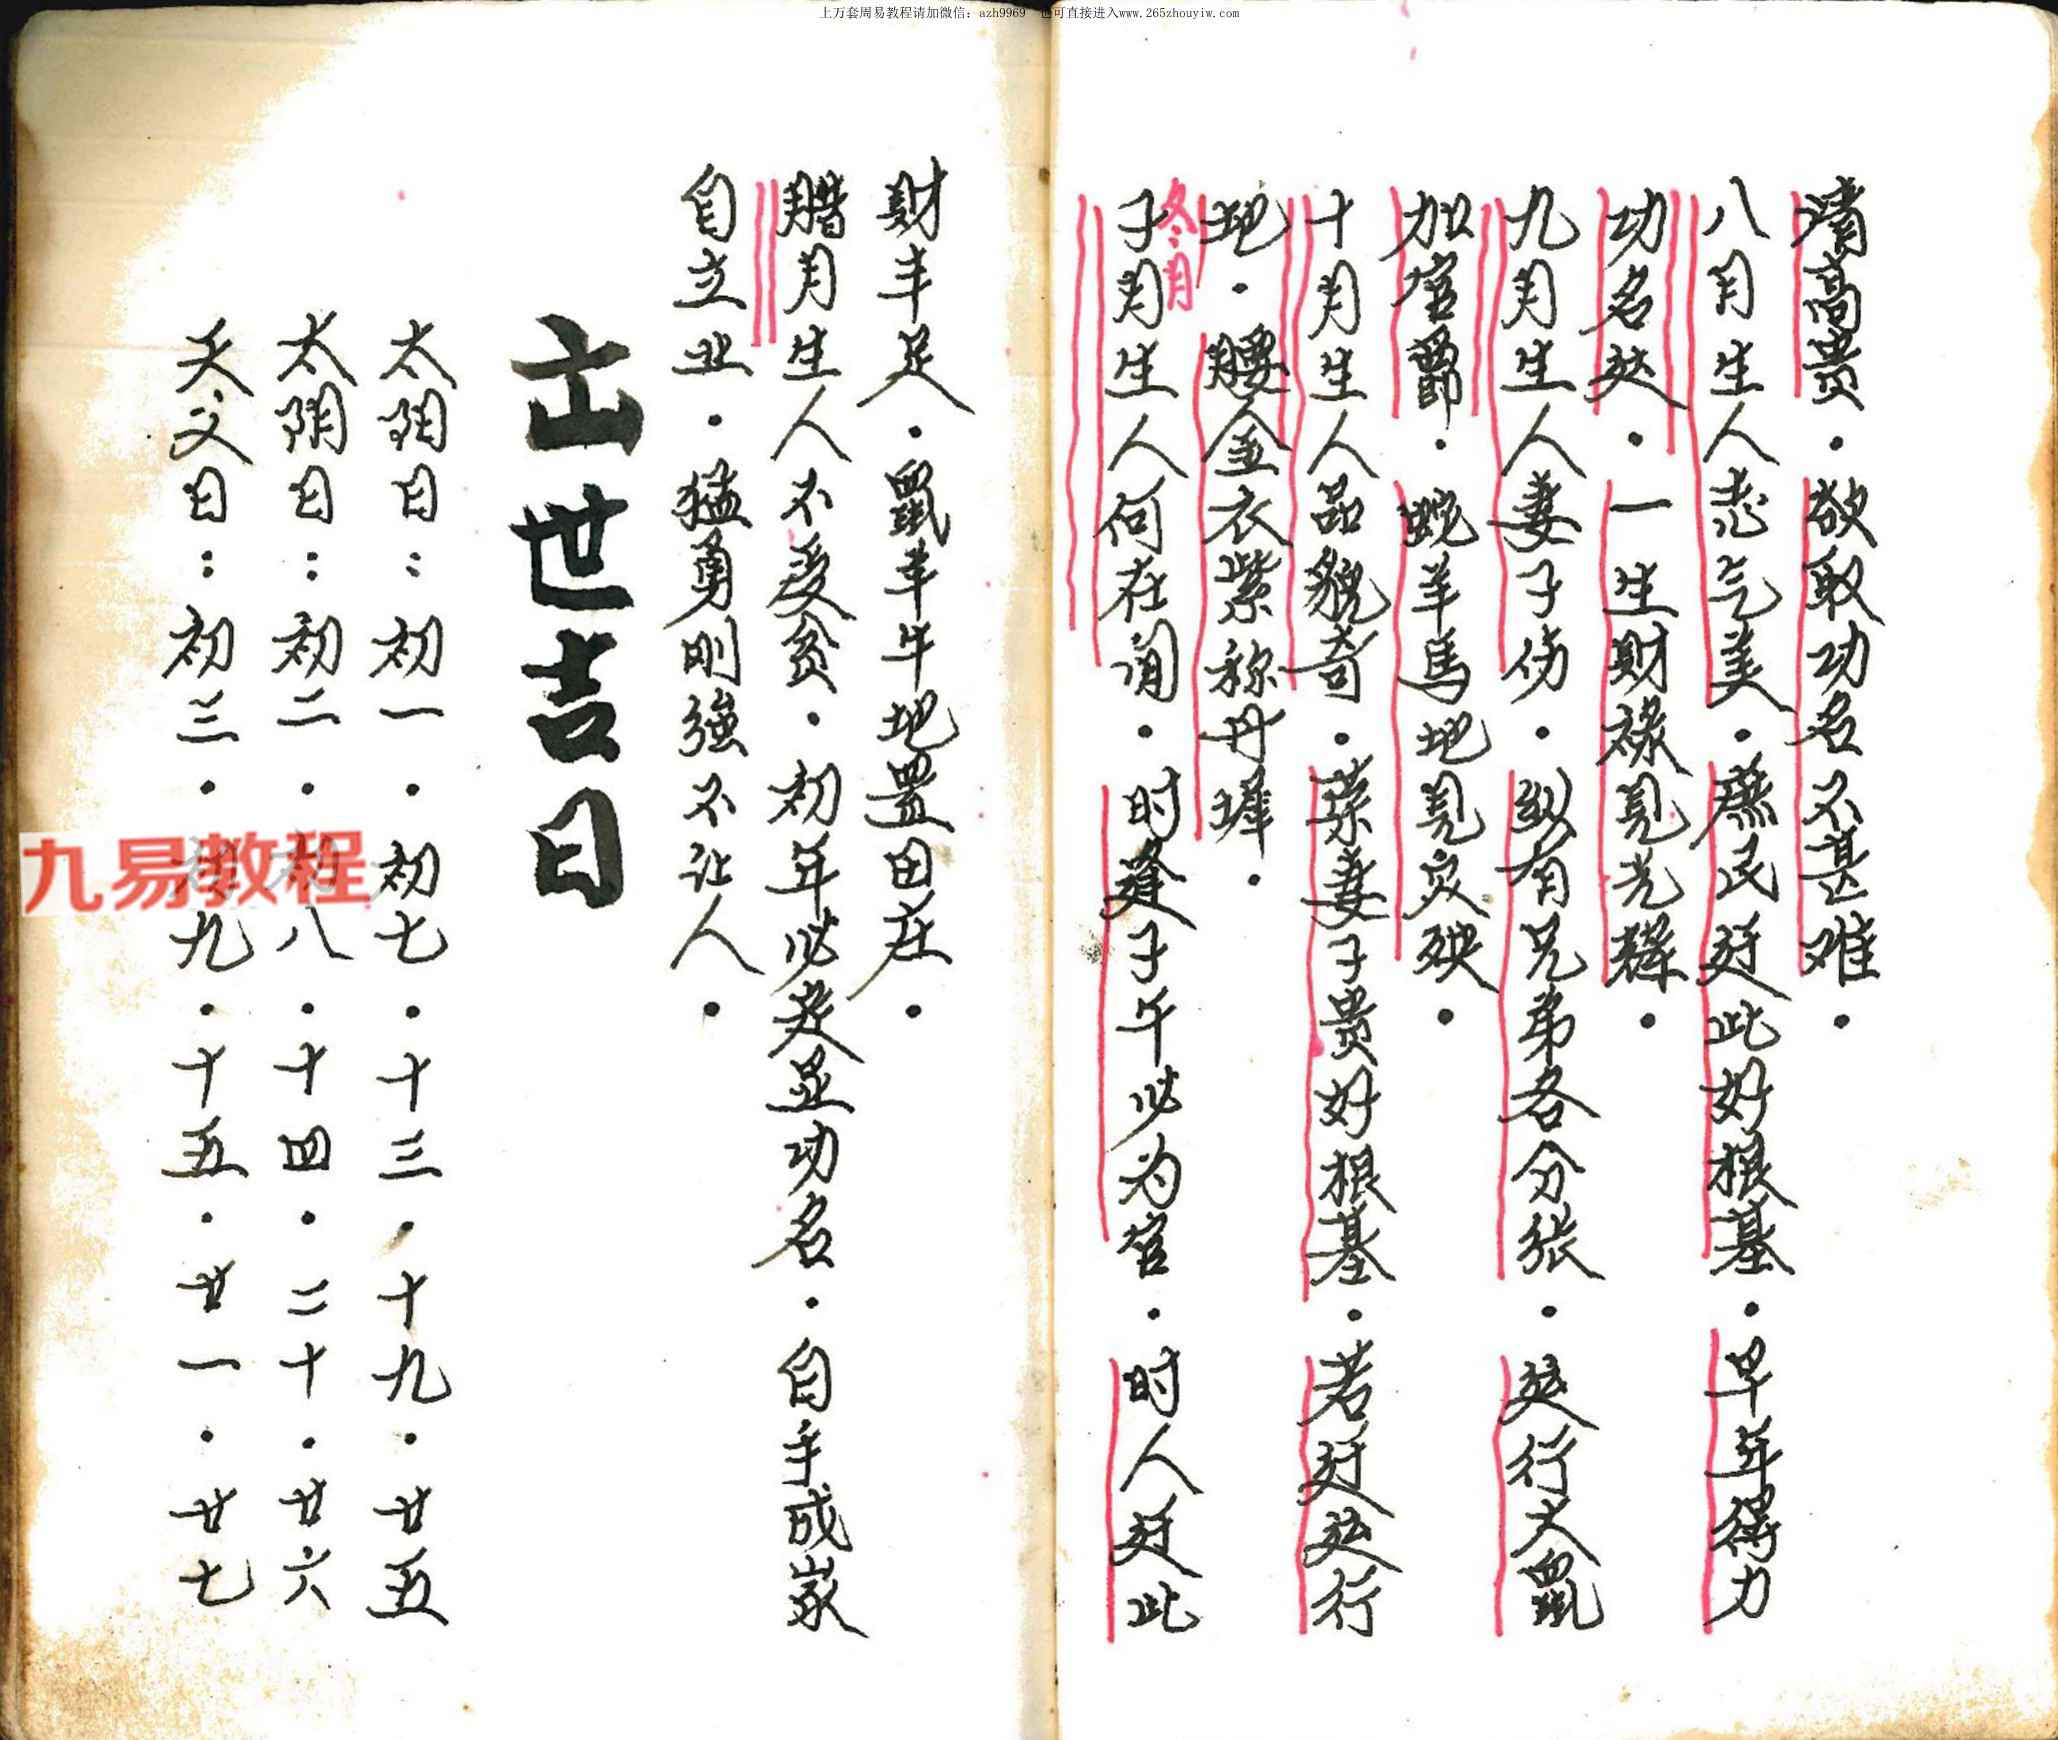 上万套周易教程请加微信：azh9969 也可直接进入www.265zhouyiw.com
清高贵．欲取功名不甚难．
八月生人志气美．庶民廷此好根基．早年得力
功名处．一生财禄见光辉．
九月生人妻子伤．纵有兄弟各分张．运行大鼠
加官爵．蛇羊马地见灾殃．
十月生人品貌奇．荣妻子贵好根基．若廷运行
地．腰金衣紫称丹墀．
冬月
子月生人何在间．时逢子午必为官．时人廷此
财丰足．鼠羊牛地置田庄．
腊月生人不受贫．初年必发显功名．自手成家
自立业．猛勇刚強不让人．
出世吉日
太阳日：初一．初七．十三．十九．廿五
太阴日：初二．初八．十四．二十．廿六
天父日：初三．初九．十五．廿一．廿七
九易教程